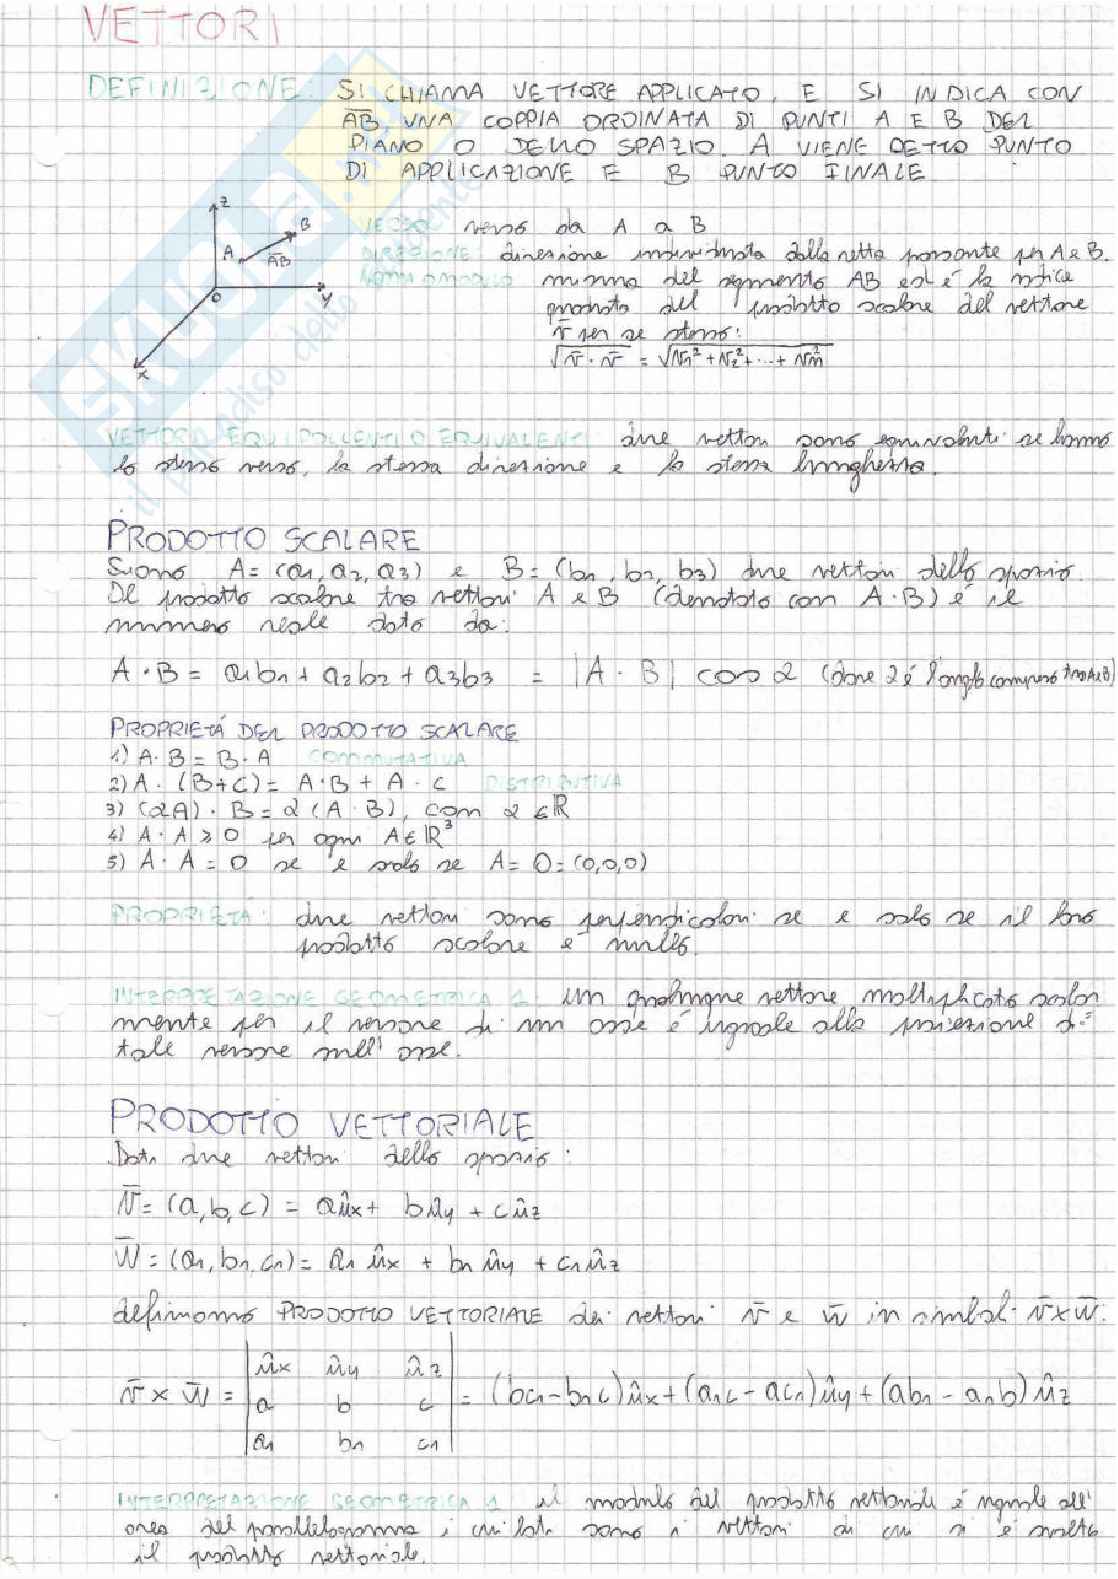 VETTORI
DEFINIZIONE: SI CHIAMA VETTORE APPLICATO, E SI INDICA CON
AB, UNA COPPIA ORDINATA DI PUNTI A E B DEL
PIANO O DELLO SPAZIO. A VIENE DETTO PUNTO
DI APPLICAZIONE E B PUNTO FINALE
z
A B
AB
O y
x
VERSO verso da A a B
DIREZIONE direzione individuata dalla retta passante per A e B.
NORMA O MODULO misura del segmento AB ed è la radice
quadrata del prodotto scalare del vettore
v̄ per se stesso:
√v̄ · v̄ = √v₁² + v₂² + ... + vₙ²
VETTORI EQUIPOLLENTI O EQUIVALENTI due vettori sono equivalenti se hanno
lo stesso verso, la stessa direzione e la stessa lunghezza.
PRODOTTO SCALARE
Siano A = (a₁, a₂, a₃) e B = (b₁, b₂, b₃) due vettori dello spazio.
Il prodotto scalare tra vettori A e B (denotato con A·B) è il
numero reale dato da:
A · B = a₁b₁ + a₂b₂ + a₃b₃ = |A · B| cos α (dove α è l'angolo compreso tra A e B)
PROPRIETÁ DEL PRODOTTO SCALARE
1) A · B = B · A COMMUTATIVA
2) A · (B+C) = A·B + A · C DISTRIBUTIVA
3) (αA) · B = α (A · B), con α ∈ ℝ
4) A · A ≥ 0 per ogni A ∈ ℝ³
5) A · A = 0 se e solo se A = O = (0,0,0)
PROPRIETÁ: due vettori sono perpendicolari se e solo se il loro
prodotto scalare è nullo.
INTERPRETAZIONE GEOMETRICA 1: un qualunque vettore moltiplicato scalar
mente per il versore di un asse è uguale alla proiezione di
tale versore sull' asse.
PRODOTTO VETTORIALE
Dati due vettori dello spazio:
v̄ = (a,b,c) = aûx + bûy + cûz
w̄ = (a₁,b₁,c₁) = a₁ ûx + b₁ ûy + c₁ûz
definiamo PRODOTTO VETTORIALE dei vettori v̄ e w̄ in simboli v̄×w̄:
v̄ × w̄ = | ûx ûy ûz | = (bc₁ - b₁c)ûx + (a₁c - ac₁)ûy + (ab₁ - a₁b)ûz
a b c
a₁ b₁ c₁
INTERPRETAZIONE GEOMETRICA 1 il modulo del prodotto vettoriale è uguale all'
area del parallelogramma i cui lati sono i vettori di cui si è svolto
il prodotto vettoriale.